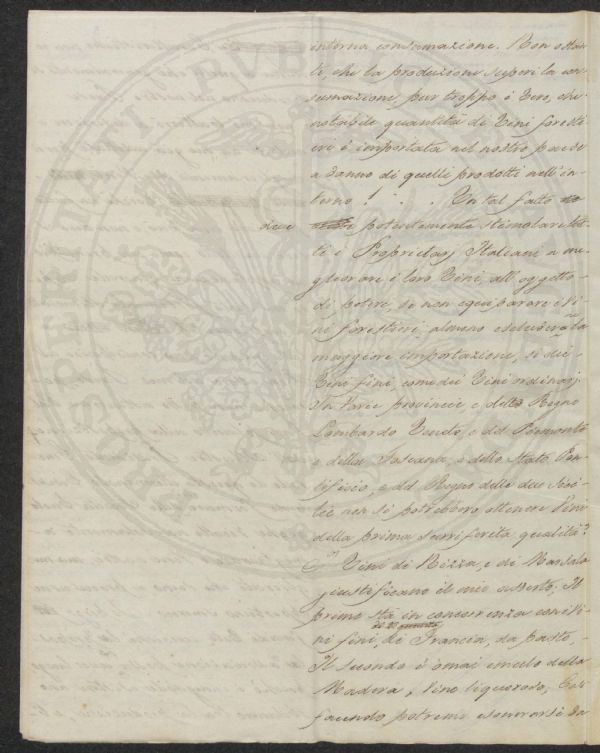 interna consumazione. Non ostan-
te, che la produzione superi la con-
sumazione pur troppo è vero, che
notabile quantità di Vini foresti-
eri è importata nel nostro paese
a danno di quelli prodotti nell'in-
terno! . . . Un tal fatto
deve potentemente stimolare tut-
ti i Proprietarj Italiani a mi-
gliorare i loro Vini, all'oggetto
di potere, se non equiparare i Vi-
ni forestieri, almeno escluderne la
maggiore importazione, sì dei
Vini fini, come dei Vini ordinarj.
In varie provincie, e dello Regno
Lombardo Veneto, e del Piemonte
e della Toscana, e dello Stato Pon-
tificio, e del Regno delle due Sici-
lie non si potrebbero ottenere Vini
della prima surriferita qualità?
Vini di Nizza, e di Marsala
giustificano il mio asserto; Il
primo sta in concorrenza coi Vi-
ni fini, di Francia, da pasto,
Il secondo è omai emulo della
Madera, Vino liquoroso; Così
facendo potremo esonerarsi da